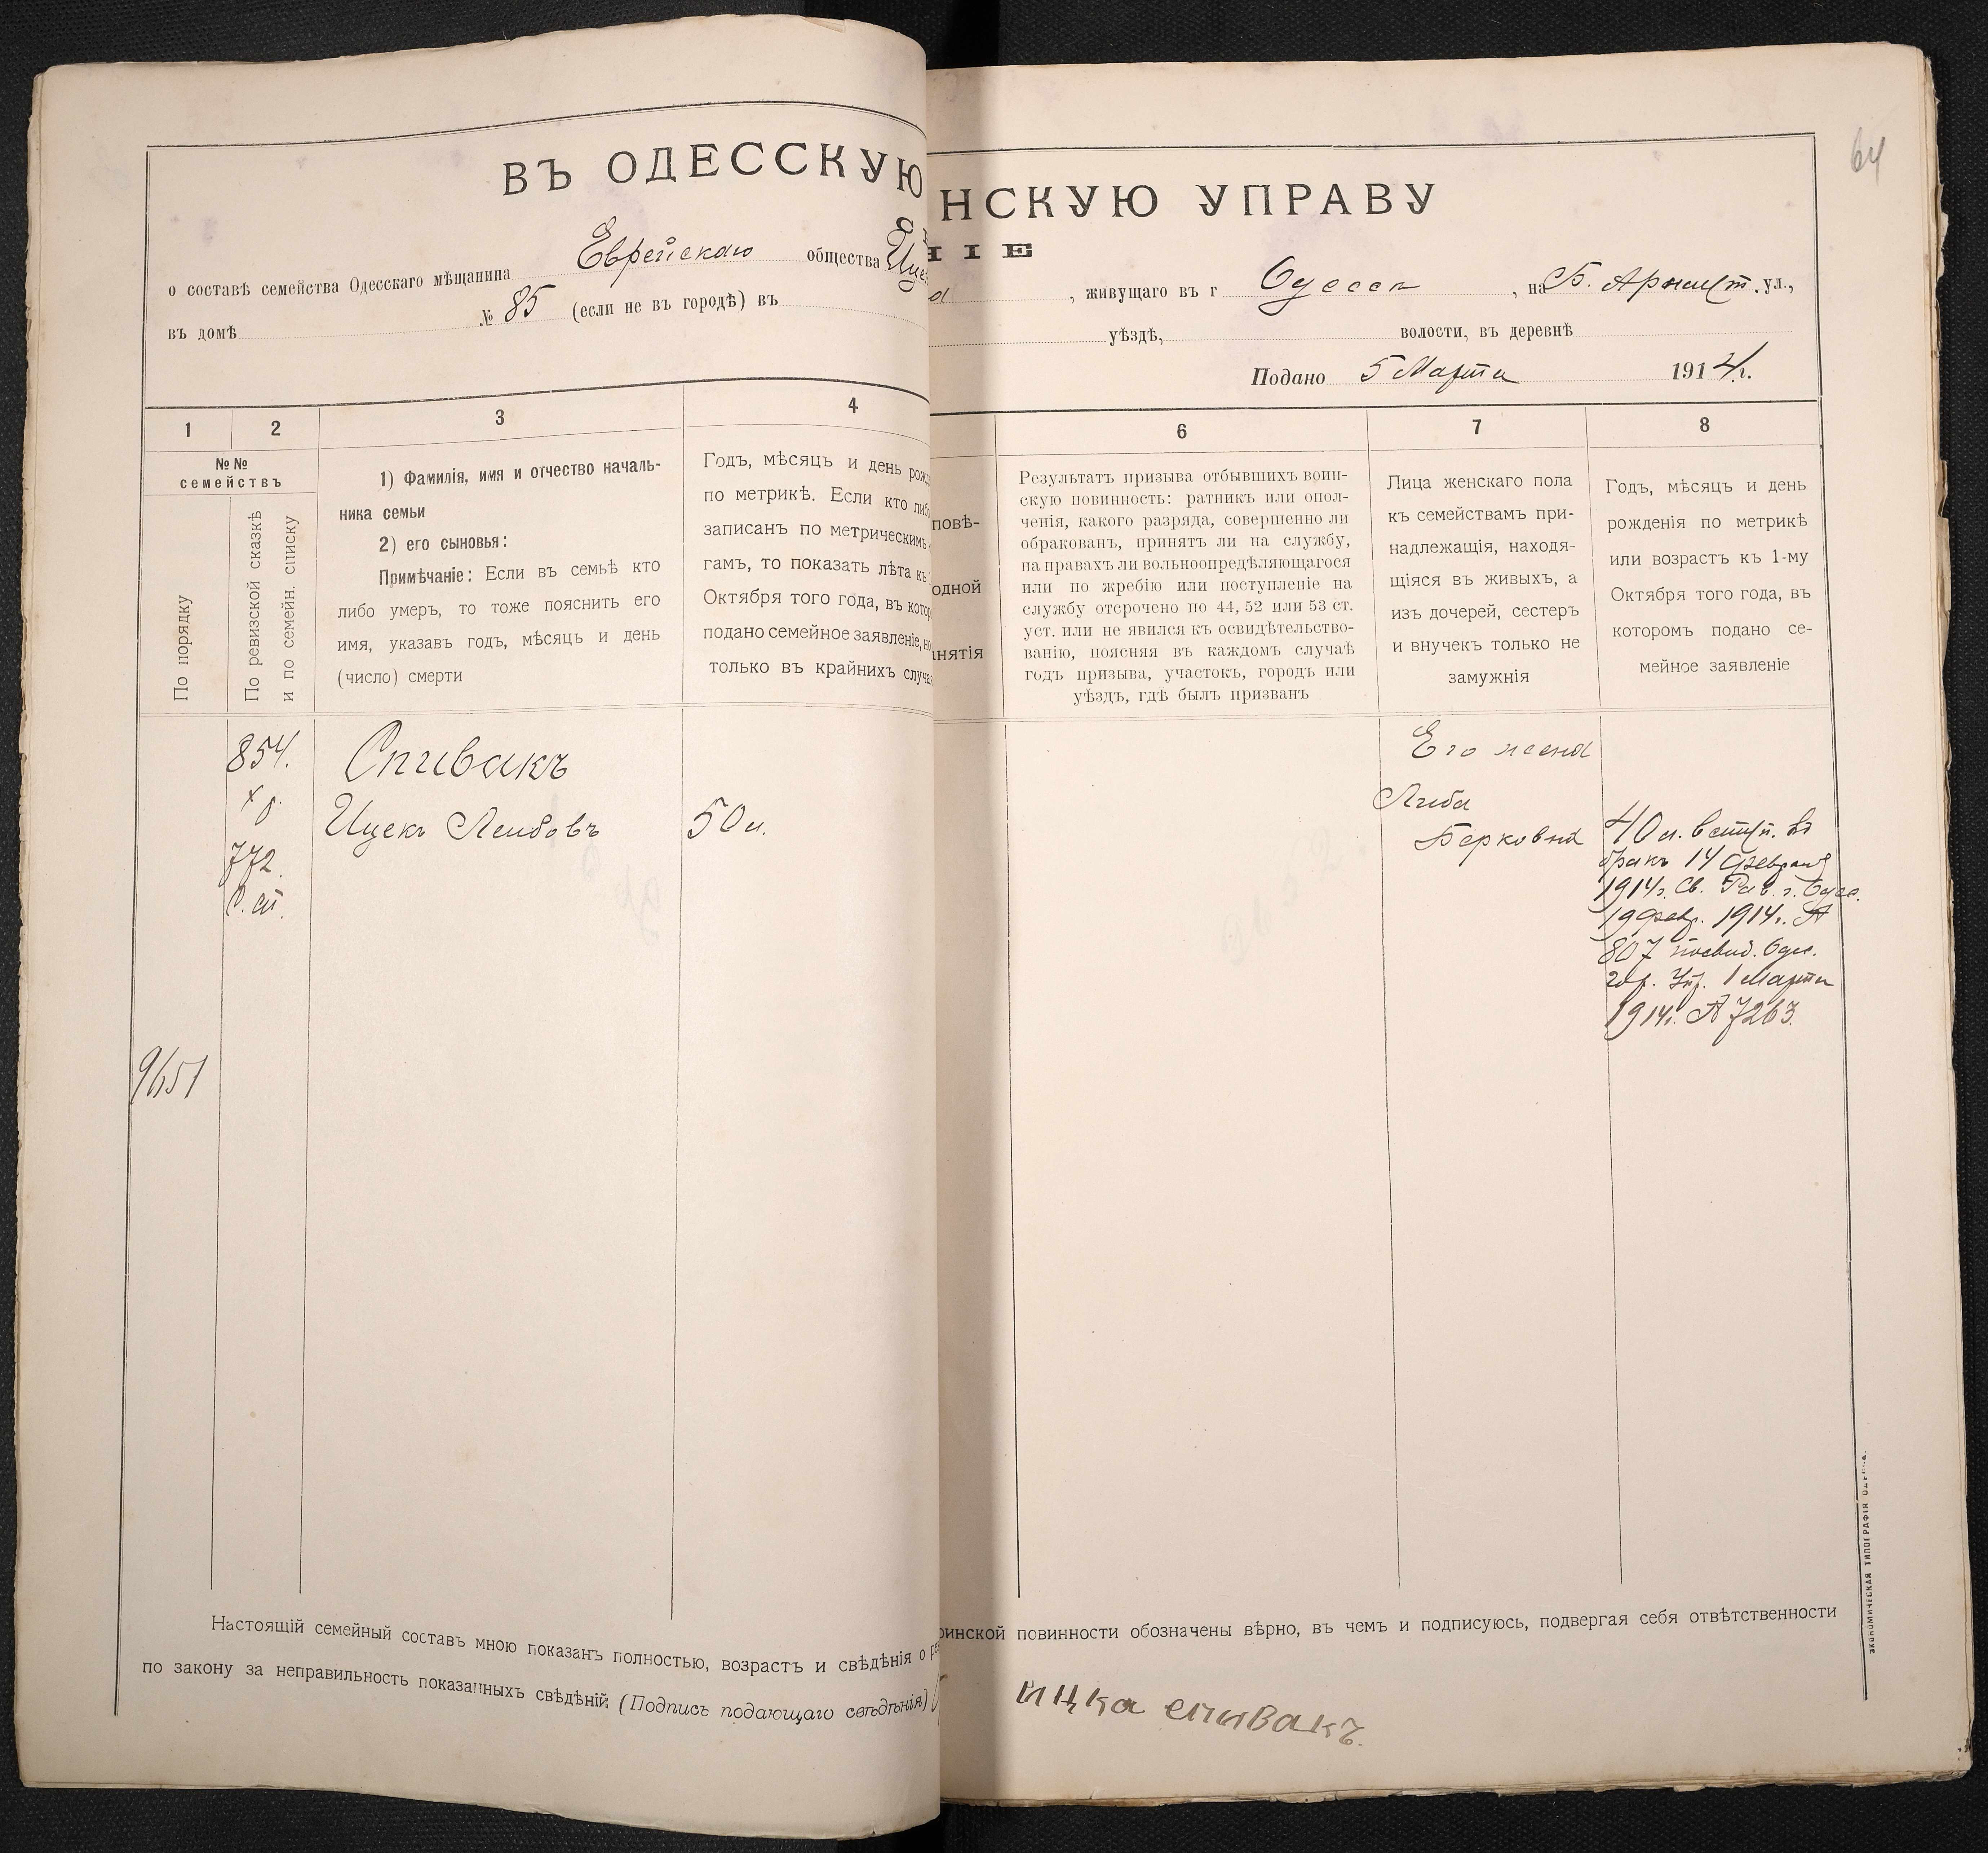 64
ВЪ ОДЕССКУЮ
НСКУЮ УПРАВУ
НІЕ
о составѣ семейства Одесскаго мѣщанина Еврейскаго общества
, живущаго въ г Одессѣ , на Б. Арнаут. ул.,
въ домѣ № 85 (если не въ городѣ) въ
уѣздѣ, волости, въ деревнѣ
Подано 5 Марта 1914 г.
1
2
3
4
6
7
8
№№
семействъ
По порядку
По ревизской сказкѣ
и по семейн. списку
1) Фамилія, имя и отчество началь-
ника семьи
2) его сыновья:
Примѣчаніе: Если въ семьѣ кто
либо умеръ, то тоже пояснить его
имя, указавъ годъ, мѣсяцъ и день
(число) смерти
Годъ, мѣсяцъ и день рожд
по метрикѣ. Если кто либ
записанъ по метрическимъ
гамъ, то показать лѣта къ
Октября того года, въ котор
подано семейное заявленіе, но
только въ крайнихъ случа
повѣ-
одной
нятія
Результатъ призыва отбывшихъ воин-
скую повинность: ратникъ или опол-
ченія, какого разряда, совершенно ли
обракованъ, принятъ ли на службу,
на правахъ ли вольноопредѣляющагося
или по жребію или поступленіе на
службу отсрочено по 44, 52 или 53 ст.
уст. или не явился къ освидѣтельство-
ванію, поясняя въ каждомъ случаѣ
годъ призыва, участокъ, городъ или
уѣздъ, гдѣ былъ призванъ
Лица женскаго пола
къ семействамъ при-
надлежащія, находя-
щіяся въ живыхъ, а
изъ дочерей, сестеръ
и внучекъ только не
замужнія
Годъ, мѣсяцъ и день
рожденія по метрикѣ
или возрастъ къ 1-му
Октября того года, въ
которомъ подано се-
мейное заявленіе
854.
772.
9651
Спивакъ
Ицекъ Лейбовъ
50 л.
Его жена
Либа
Берковна
40 л. вступ. въ
бракъ 14 февраля
1914 г. Св. Рав. г. Одес.
19 февр. 1914 г. №
807 Одес.
гор. Упр. 1 Марта
1914 г. № 7263.
Настоящій семейный составъ мною показанъ полностью, возрастъ и свѣдѣнія о
оинской повинности обозначены вѣрно, въ чемъ и подписуюсь, подвергая себя отвѣтственности
по закону за неправильность показанныхъ свѣдѣній (Подпись подающаго свѣдѣнія)
ицка спивакъ.
ЭКОНОМИЧЕСКАЯ ТИПОГРАФІЯ